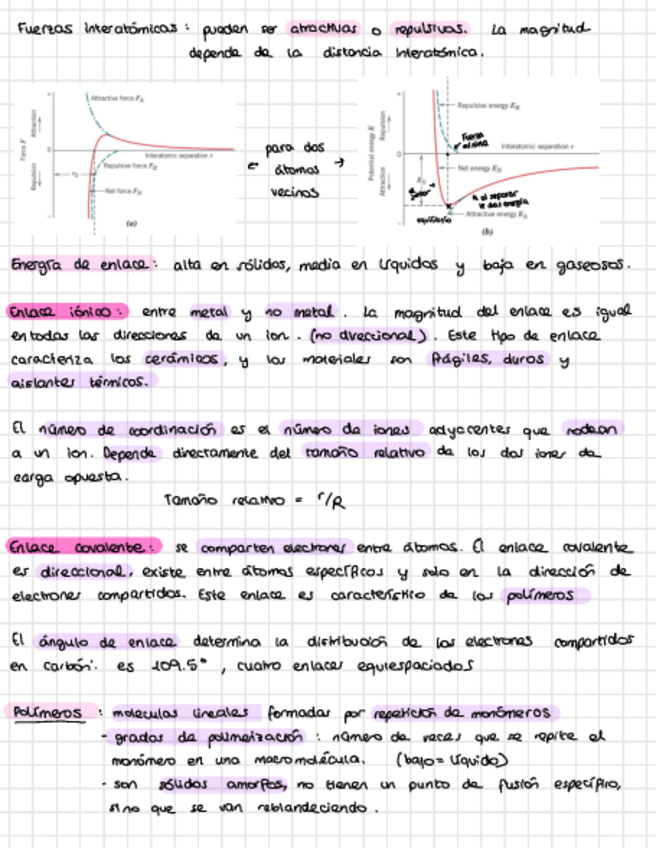 Fuerzas interatómicas: pueden ser atractivas o repulsivas. La magnitud
depende de la distancia interatómica.
Attractive force F_A
Attraction
Force F
0
Interatomic separation r
Repulsion
Repulsive force F_R
Net force F_N
(a)
← para dos →
átomos
vecinos
Repulsion
Potential energy E
Attraction
Repulsive energy E_R
0
Interatomic separation r
Net energy E_N
E_0
al separar
equilibrio
Attractive energy E_A
(b)
Energía de enlace: alta en sólidos, media en líquidos y baja en gaseosos.
Enlace iónico: entre metal y no metal. La magnitud del enlace es igual
en todas las direcciones de un ion. (no direccional). Este tipo de enlace
caracteriza los cerámicos, y los materiales son frágiles, duros y
aislantes térmicos.
El número de coordinación es el número de iones adyacentes que rodean
a un ion. Depende directamente del tamaño relativo de los dos iones de
carga opuesta.
Tamaño relativo = r/R
Enlace covalente: se comparten electrones entre átomos. El enlace covalente
es direccional, existe entre átomos específicos y solo en la dirección de
electrones compartidos. Este enlace es característico de los polímeros
El ángulo de enlace determina la distribución de los electrones compartidos
en carbón: es 109.5°, cuatro enlaces equiespaciados
Polímeros: moleculas lineales formadas por repetición de monómeros
- grados de polimeización: número de veces que se repite el
monómero en una macromolécula. (bajo = líquido)
- son sólidos amorfos, no tienen un punto de fusión específico,
sino que se van reblandeciendo.